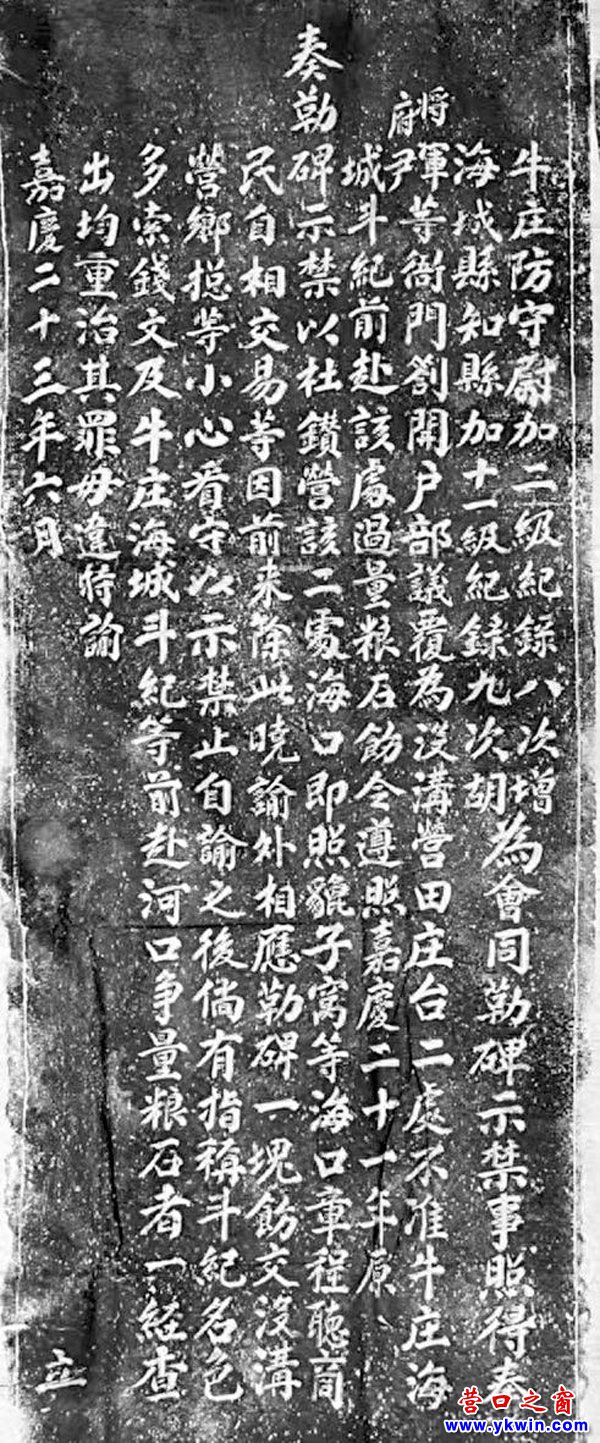 牛庄防守尉加二級紀録八次增
海城縣知縣加十一級紀録九次胡
為會同勒碑示禁事照得奉
将軍
府尹
等衙門劄開户部議覆為没溝營田庄台二處不准牛庄海
城斗紀前赴該處過量粮石飭令遵照嘉慶二十一年原
奏勒碑示禁以杜鑚營該二處海口即照貔子窩等海口章程聽商
民自相交易等因前来除此曉諭外相應勒碑一塊飭交没溝
營鄉揔等小心看守以示禁止自諭之後倘有指稱斗紀名色
多索錢文及牛庄海城斗紀等前赴河口争量粮石者一經查
出均重治其罪毋違特諭
嘉慶二十三年六月 立
营口之窗
www.ykwin.com